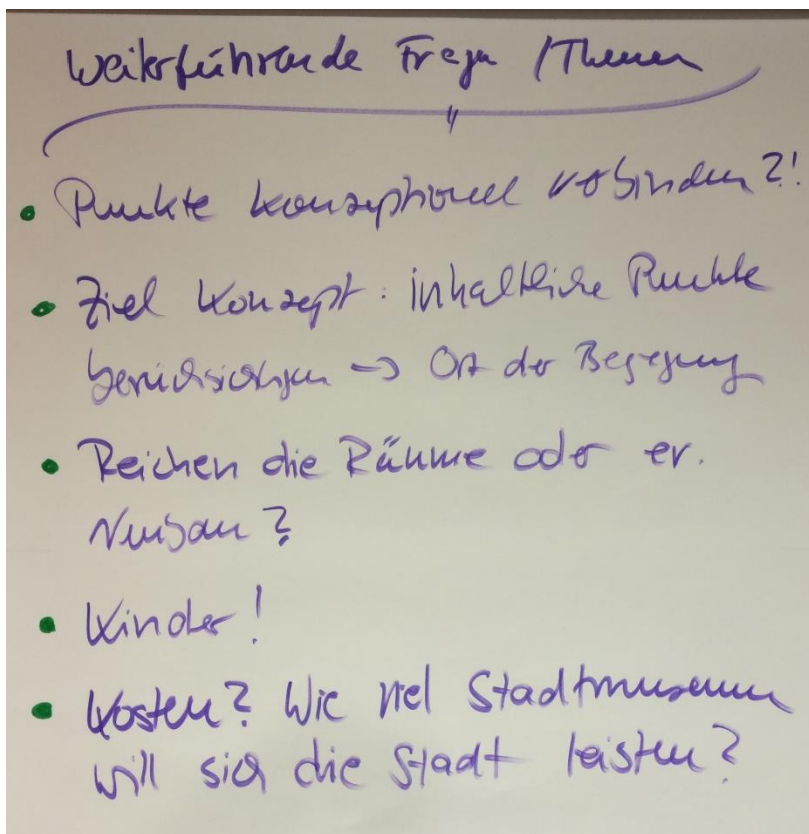 Weiterführende Fragen / Themen
• Punkte konzeptionell verbinden?!
• Ziel Konzept: inhaltliche Punkte
berücksichtigen → Ort der Begegnung
• Reichen die Räume oder ev.
Neubau?
• Kinder!
• Kosten? Wie viel Stadtmuseum
will sich die Stadt leisten?